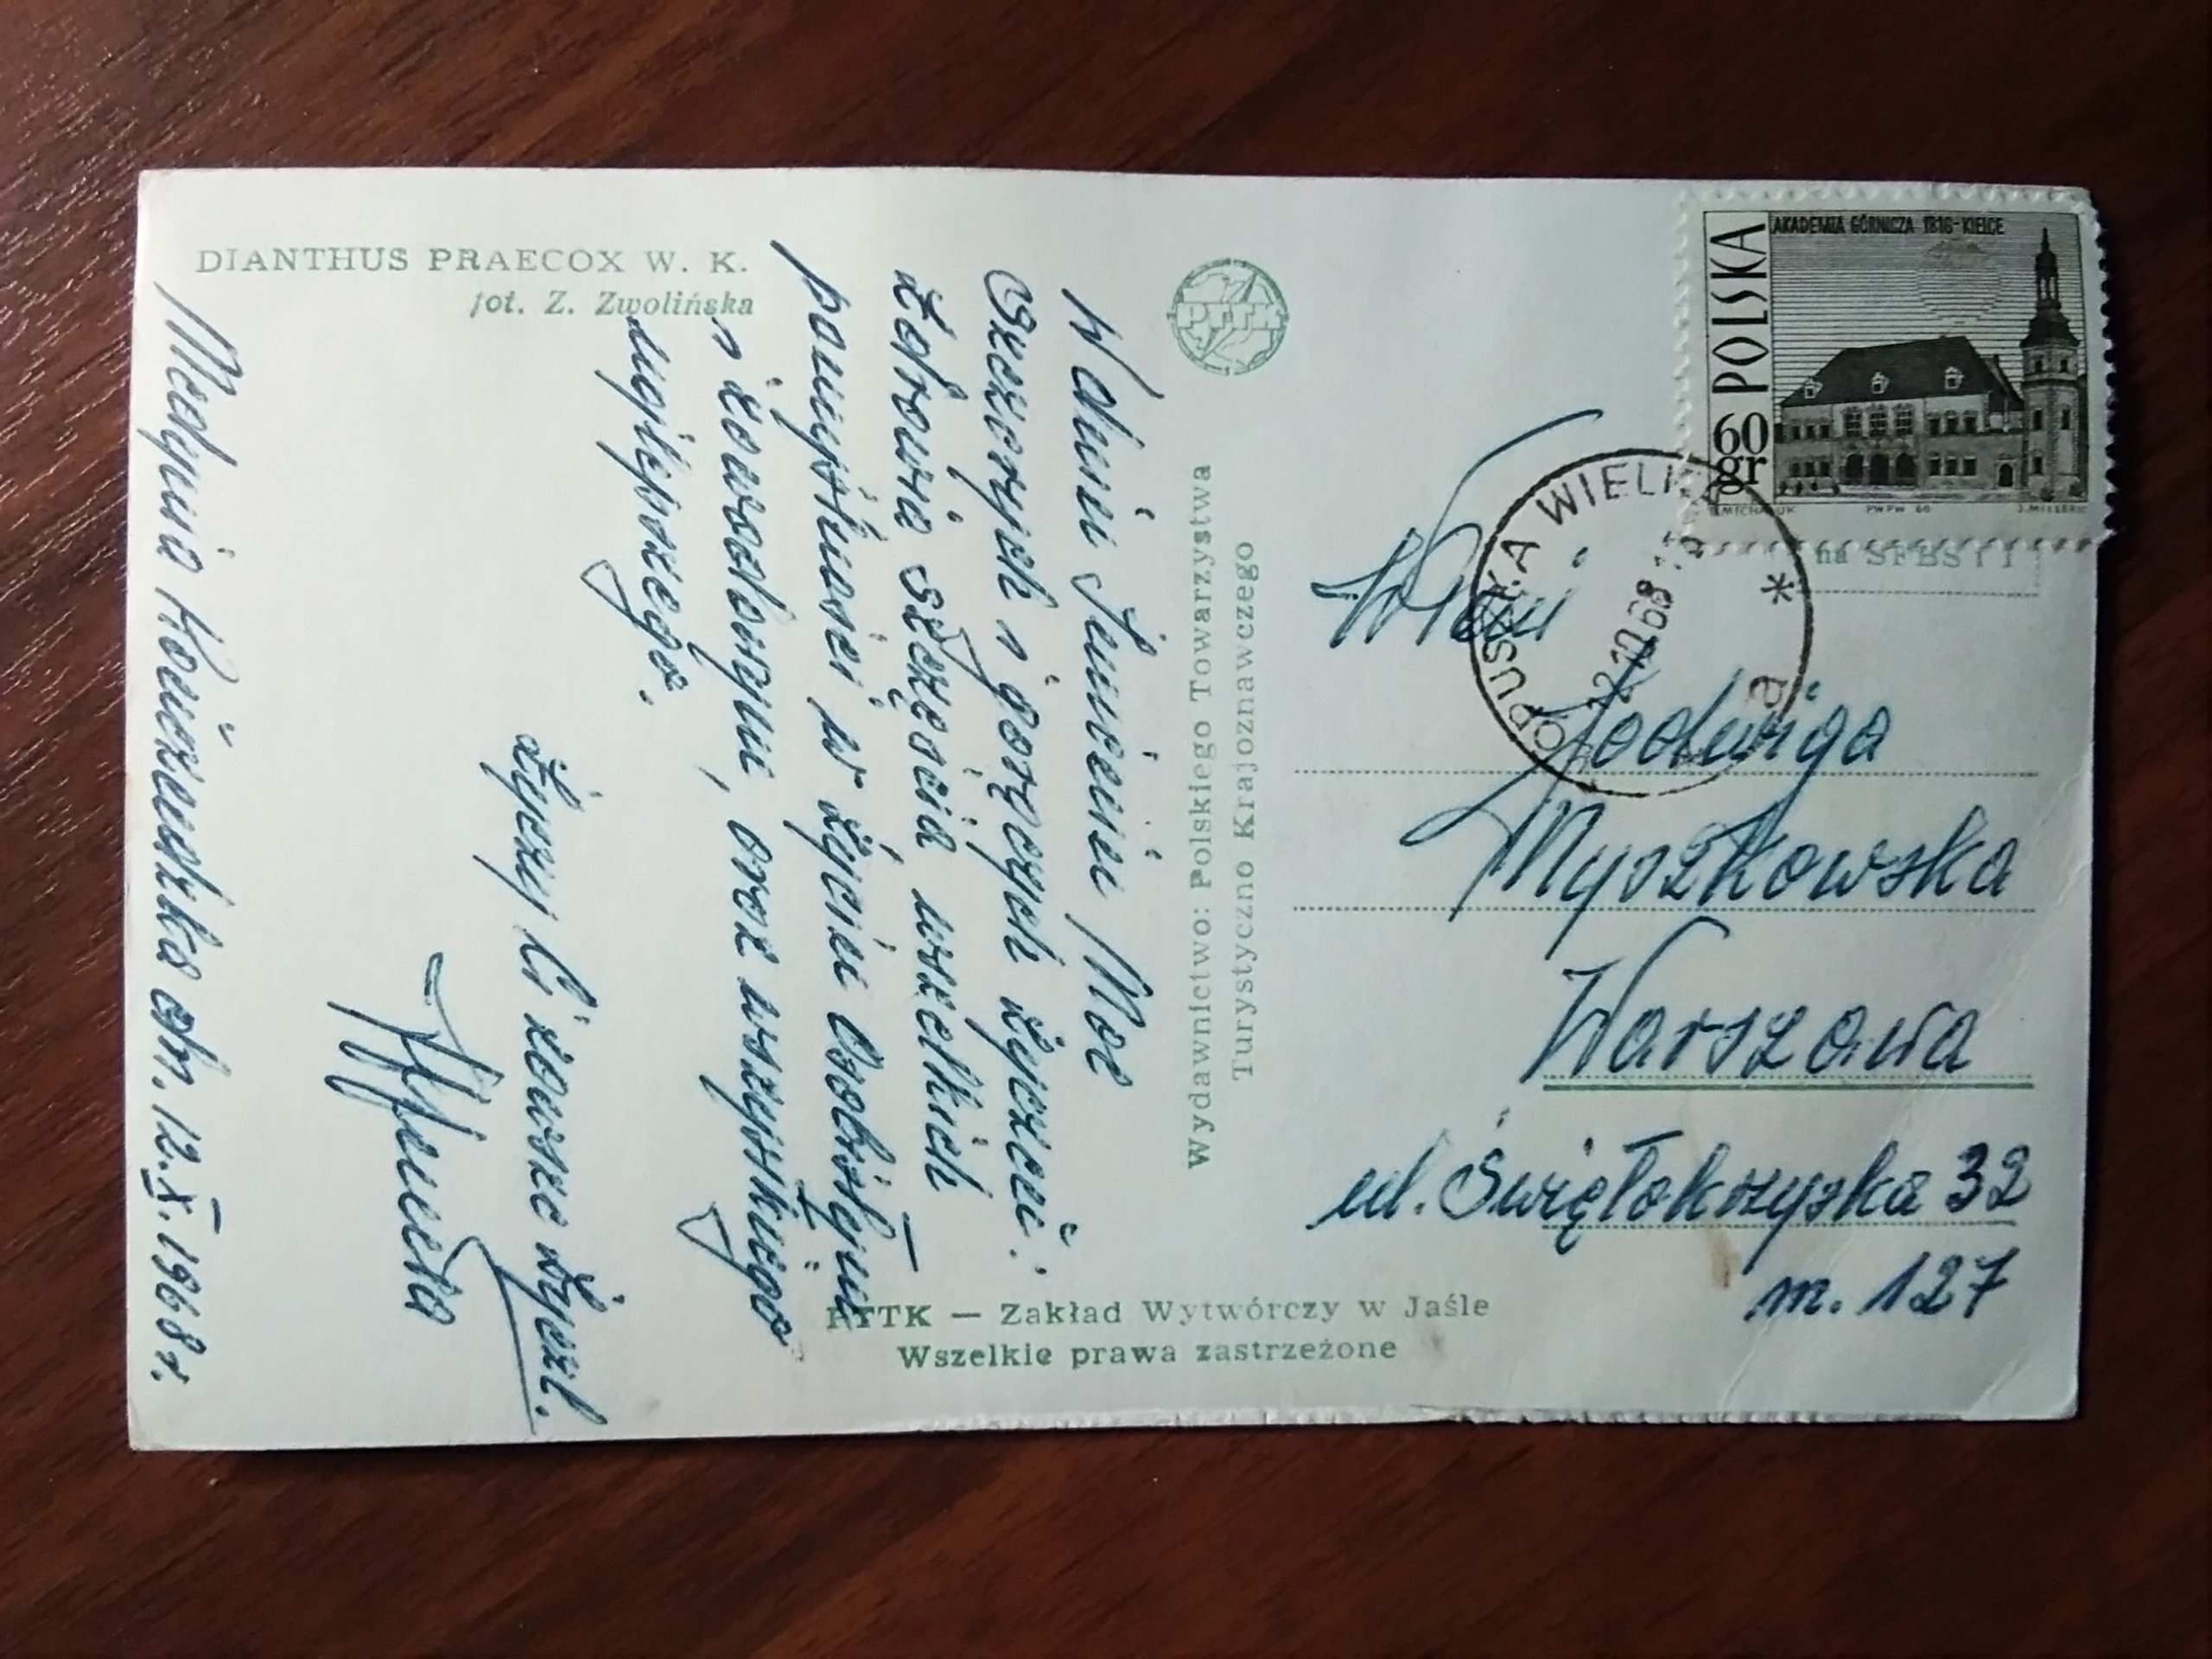 DIANTHUS PRAECOX W. K.
fot. Z. Zwolińska
W dniu Imienin Moc
Szczerych i gorących życzeń:
Zdrowia Szczęścia wszelkich
pomyślności w życiu Osobistym
i zawodowym, oraz wszystkiego
najlepszego.
Życzy Ci zawsze Życzl.
Medynia Kańczucka dn. 12.X.1968r.
Wydawnictwo: Polskiego Towarzystwa
Turystyczno Krajoznawczego
PTTK
PTTK — Zakład Wytwórczy w Jaśle
Wszelkie prawa zastrzeżone
POLSKA
AKADEMIA GÓRNICZA 1816-KIELCE
60
gr
PWPW 66
J. MILLER SC
OPUSKA WIELK
12 10 68
a
W Pani
Jadwiga
Myszkowska
Warszawa
ul. Świętokrzyska 32
m. 127